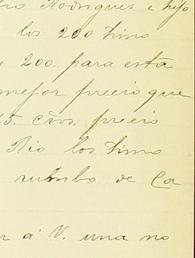 Rodrigues e hijo
los 200 tino
200. para esta
mejor precio que
5. c/vos. precio
Rio los tino
rumbo de Ca
r á V. una no